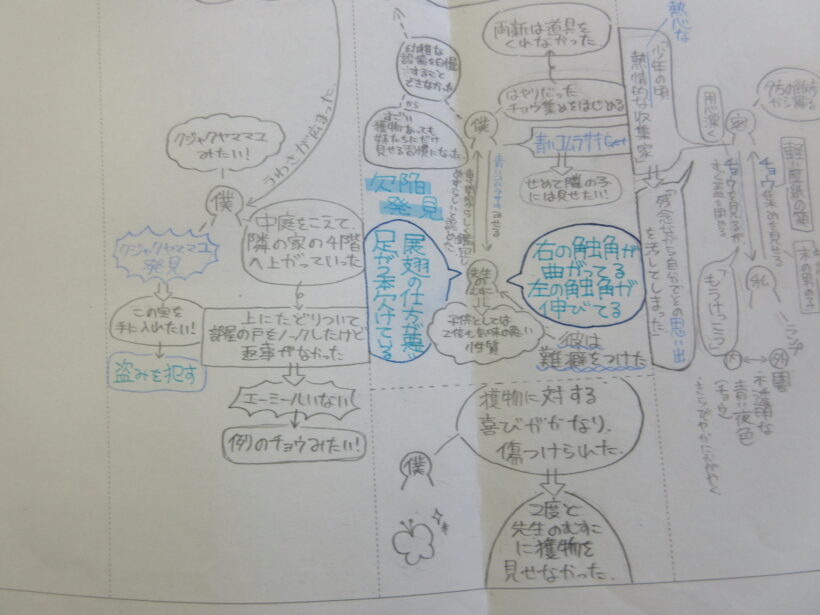 熱心な
少年の頃
熱情的な収集家
用心深く
客
チョウ集めを見せる
私
「もうけっこう」
「残念ながら自分でその思い出
を汚してしまった」
内
外
闇
ランプ
不透明な
青い夜色
(チョウ)
両親は道具を
くれなかった
はやりだった
チョウ集めをはじめる
僕
青いコムラサキGet
せめて隣の子
には見せたい!
幼稚な
設備を自慢
することが
できなかった
から
すごい
獲物があっても
妹たちにだけ
見せる習慣になった
欠陥
発見
展翅の仕方が悪い
足が2本欠けている
右の触角が
曲がってる
左の触角が
伸びてる
子供としては
2倍も気味の悪い
性質
彼は
難癖をつけた
獲物に対する
喜びがかなり、
傷つけられた。
僕
2度と
先生のむすこ
に獲物を
見せなかった。
うわさが広まった
クジャクヤママユ
みたい!
僕
クジャクヤママユ
発見
この宝を
手に入れたい!
盗みを犯す
中庭をこえて、
隣の家の4階
へ上がっていった
上にたどりついて
部屋の戸をノックしたけど
返事がなかった
エーミールいない
例のチョウみたい!